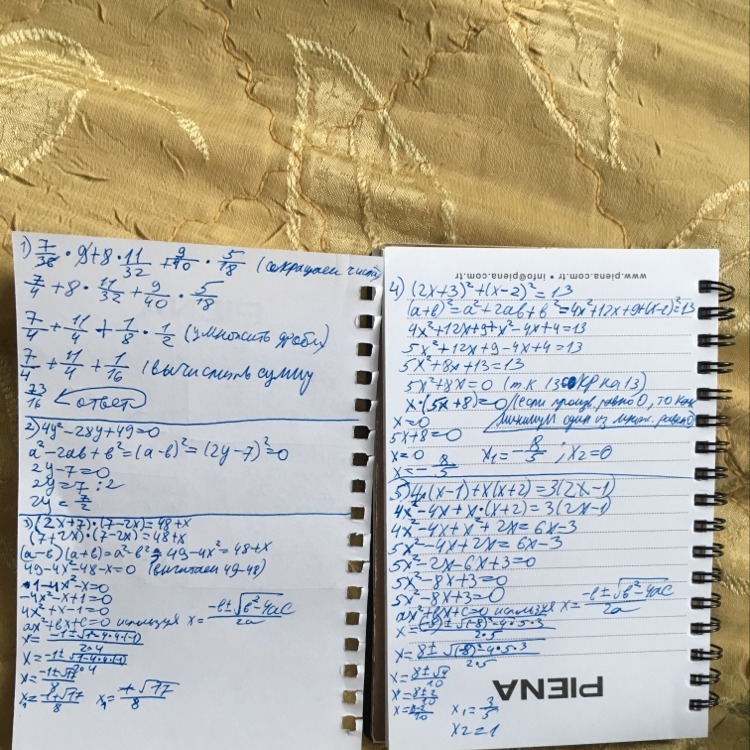 1) 7/36 · 9 + 8 · 11/32 + 9/40 · 5/18 (сокращаем числа)
7/4 + 8 · 11/32 + 9/40 · 5/18
7/4 + 11/4 + 1/8 · 1/2 (умножить дроби)
7/4 + 11/4 + 1/16 (вычислить сумму
73/16 ← ответ
2) 4y²-28y+49=0
a²-2ab+b²=(a-b)²=(2y-7)²=0
2y-7=0
2y=7 :2
2y=7/2
3) (2x+7)·(7-2x)=48+x
(7+2x)·(7-2x)=48+x
(a-b)(a+b)=a²-b² 49-4x²=48+x
49-4x²-48-x=0 (вычитаем 49-48)
1-4x²-x=0
-4x²-x+1=0
4x²+x-1=0
ax²+bx+c=0 используя x=(-b±√b²-4ac)/2a
x=(-1±√1²-4·4·(-1))/2·4
x=(-1±√1-4·4·(-1))/2·4
x=(-1±√17)/8
x₁= √17/8 x₁= √17/8
www.piena.com.tr • info@piena.com.tr
4) (2x+3)²+(x-2)²=13
(a+b)²=a²+2ab+b²=4x²+12x+9+(x-2)²=13
4x²+12x+9+x²-4x+4=13
5x²+12x+9-4x+4=13
5x²+8x+13=13
5x²+8x=0 (т.к 13 сокр на 13)
x·(5x+8)=0 (если произв. равно 0, то как
минимум один из множ. равен 0
x=0
5x+8=0
x=0 x₁=-8/5; x₂=0
x=-8/5
5) 4x(x-1)+x(x+2)=3(2x-1)
4x²-4x+x·(x+2)=3(2x-1)
4x²-4x+x²+2x=6x-3
5x²-4x+2x=6x-3
5x²-2x-6x+3=0
5x²-8x+3=0
5x²-8x+3=0
ax²+bx+c=0 используя x=(-b±√b²-4ac)/2a
x=(-(-8)±√(-8)²-4·5·3)/2·5
x=(8±√(-8)²-4·5·3)/2·5
x=(8±√4)/10
x=(8±2)/10
x=(8±2)/10 x₁=3/5
x₂=1
PIENA